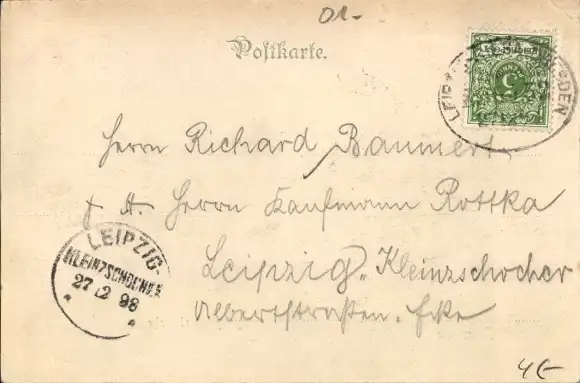 01-
Postkarte.
LEIPZIG DRESDEN
5
Herrn Richard Baumert
p. A. Herrn Kaufmann Rottka
Leipzig-Kleinzschocher
Albertstraßen-Ecke
LEIPZIG-
KLEINZSCHOCHER
27 12 98
4€